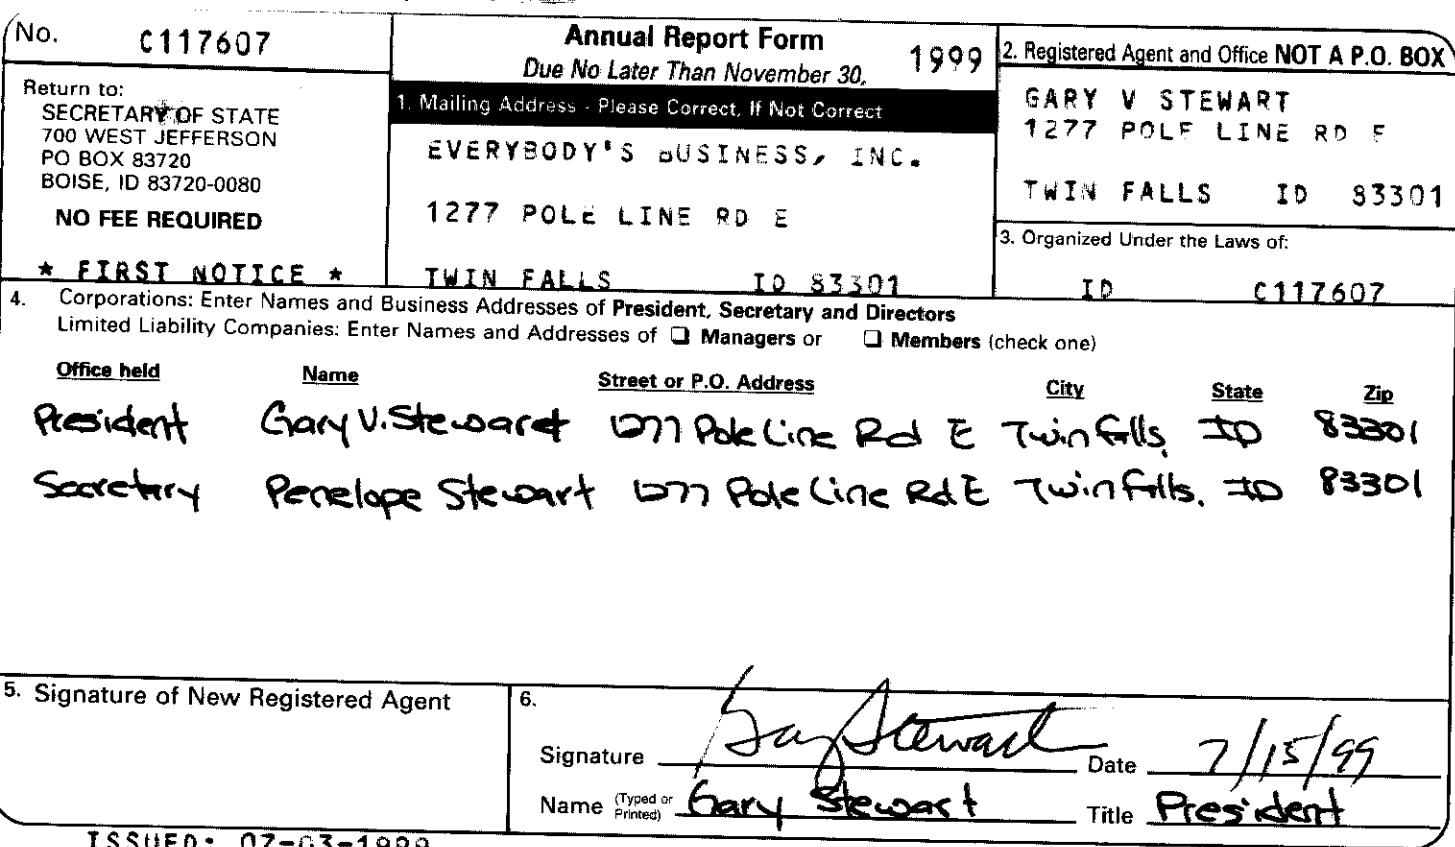 No. C117607
Return to:
SECRETARY OF STATE
700 WEST JEFFERSON
PO BOX 83720
BOISE, ID 83720-0080
NO FEE REQUIRED
* FIRST NOTICE *
Annual Report Form 1999
Due No Later Than November 30,
1. Mailing Address - Please Correct, If Not Correct
EVERYBODY'S BUSINESS, INC.
1277 POLE LINE RD E
TWIN FALLS ID 83301
2. Registered Agent and Office NOT A P.O. BOX
GARY V STEWART
1277 POLE LINE RD E
TWIN FALLS ID 83301
3. Organized Under the Laws of:
ID C117607
4. Corporations: Enter Names and Business Addresses of President, Secretary and Directors
Limited Liability Companies: Enter Names and Addresses of ❏ Managers or ❏ Members (check one)
Office held Name Street or P.O. Address City State Zip
President Gary V. Stewart 1277 Pole Line Rd E Twin Falls, ID 83301
Secretary Penelope Stewart 1277 Pole Line Rd E Twin Falls, ID 83301
5. Signature of New Registered Agent
6.
Signature Gary Stewart Date 7/15/99
Name (Typed or Printed) Gary Stewart Title President
ISSUED: 07-03-1999